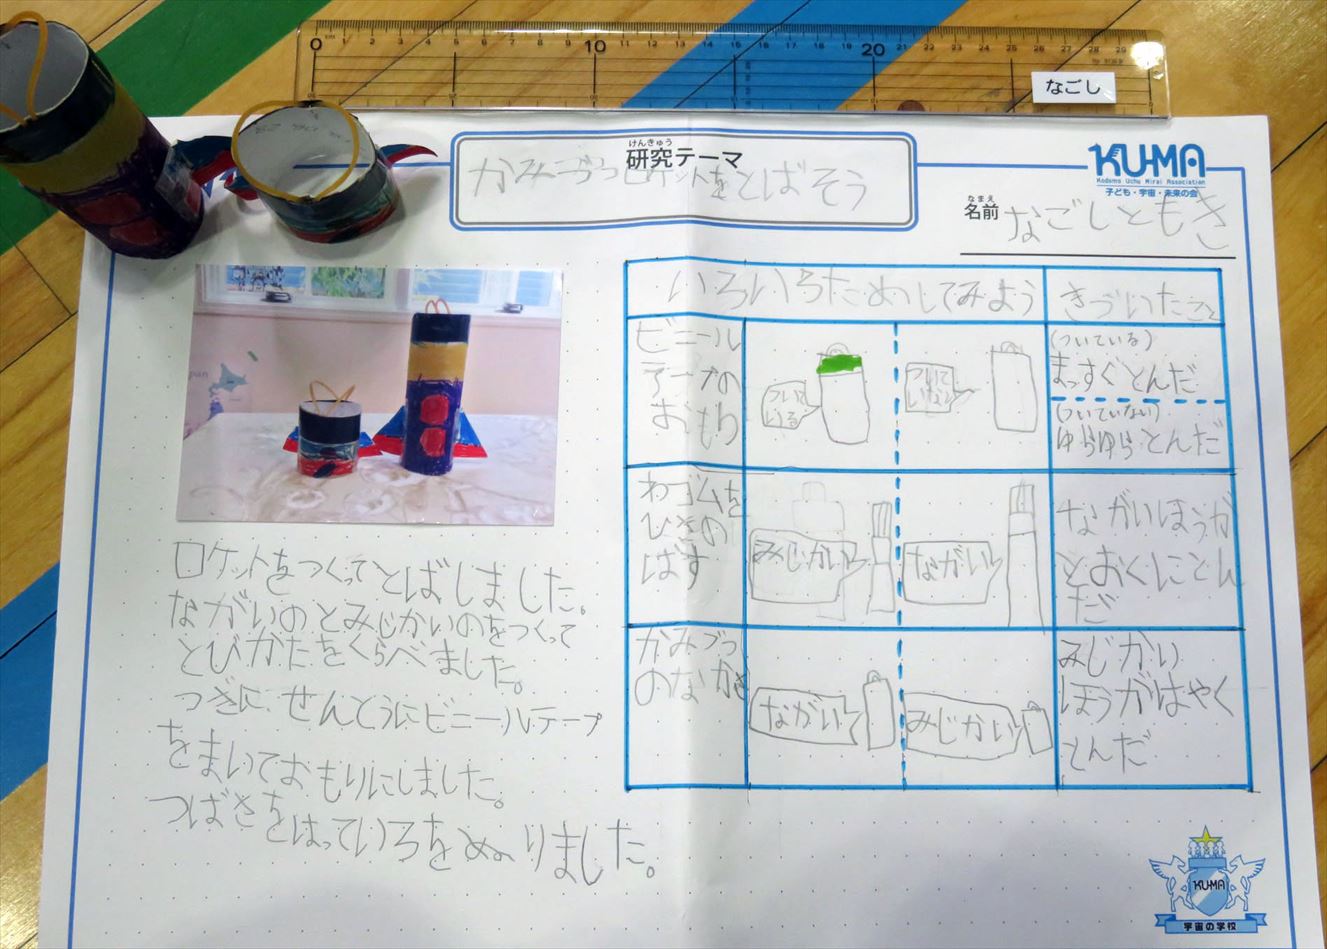 0 10 20
なごし
けんきゅう
研究テーマ
かみづつロケットをとばそう
KU-MA
Kodomo Uchu Mirai Association
子ども・宇宙・未来の会
なまえ
名前
なごしともき
いろいろためしてみよう
きづいたこと
ビニール
テープの
おもり
ついて
いる
ついて
いない
(ついている)
まっすぐとんだ
(ついていない)
ゆらゆらとんだ
わゴムを
ひきの
ばす
みじかい
ながい
ながいほうが
とおくにとん
だ
かみづつ
のながさ
ながい
みじかい
みじかい
ほうがはやく
とんだ
ロケットをつくってとばしました。
ながいのとみじかいのをつくって
とびかたをくらべました。
つぎに せんとうにビニールテープ
をまいておもりにしました。
つばさをはっていろをぬりました。
KU-MA
宇宙の学校